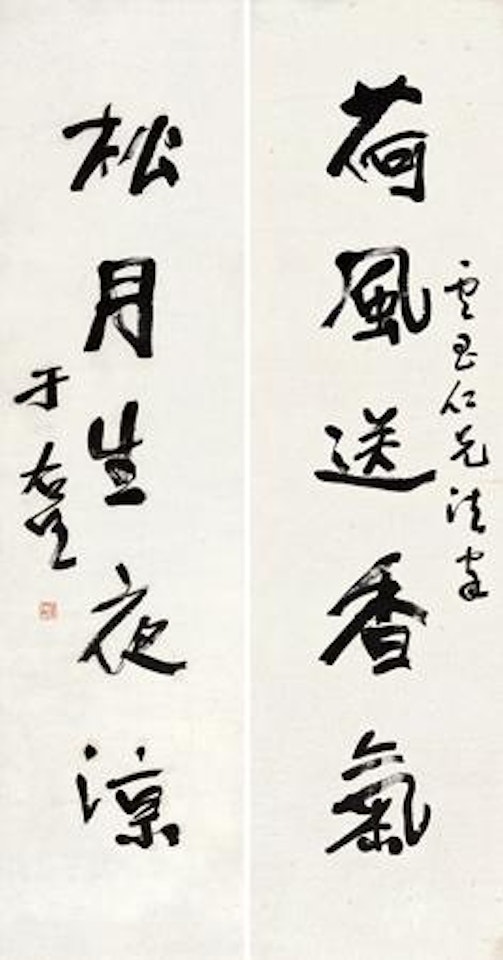 仁兄法家
荷風送香氣
松月生夜涼
于右任